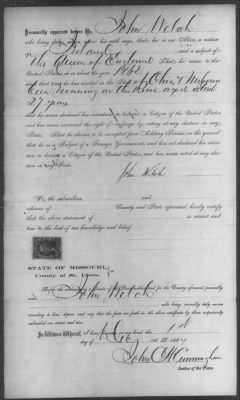 Personally appeared before me John Welsh
who being duly sworn upon his oath says, that he is an Alien, a native
of Ireland and a subject of
the Queen of England That he came to the
United States in or about the year 1862
and that he has resided in the State of Ohio & Missouri
been running on the River aged about
27 years
that he never declared his intention to become a Citizen of the United States
and has never exercised the right of suffrage by voting at any election in any
State. That he claims to be exempted from Military Service on the ground
that he is a Subject of a Foreign Government, and has not declared his intention
to become a Citizen of the United States, and has never voted at any election
in any State.
John Welsh
We, the subscribers,
citizens of County and State aforesaid, hereby certify
that the above statement of is correct and
true to the best of our knowledge and belief
STATE OF MISSOURI,
County of St. Louis,
for the County aforesaid personally
John Welsh
who being severally duly sworn
according to law, depose and say that the facts set forth in the above certificate by them respectively
subscribed are correct and true.
In Witness Whereof, I have hereunto set my hand, this 1st
day of Dec A.D. 186
Justice of the Peace